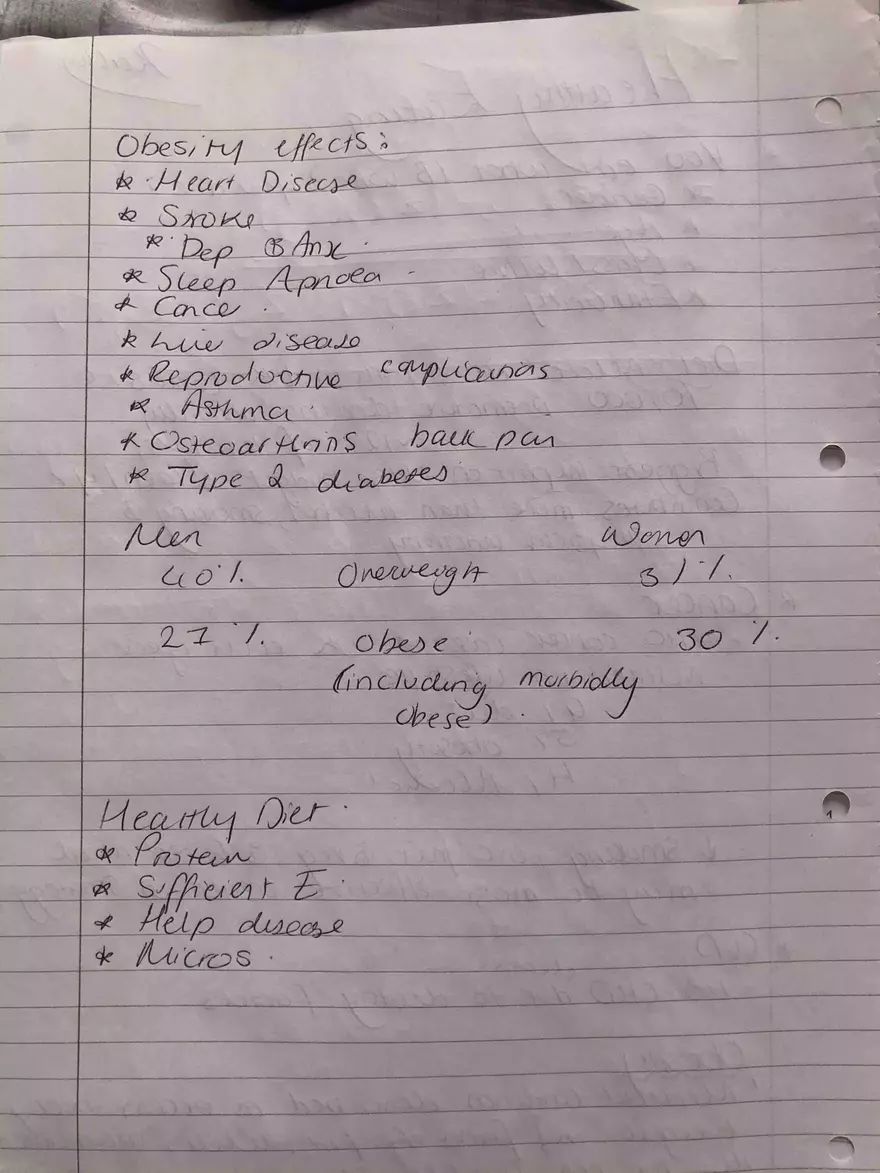 Obesity effects:
* Heart Disease
* Stroke
* Dep & Anx.
* Sleep Apnoea
* Cance
* Live disease
* Reproductive complications
* Asthma
* Osteoarthritis back pain
* Type 2 diabetes
Men Women
40%. Overweight 31%.
27%. Obese 30%.
(including morbidly
obese).
Healthy Diet.
* Protein
* Sufficient E.
* Help disease
* Micros.